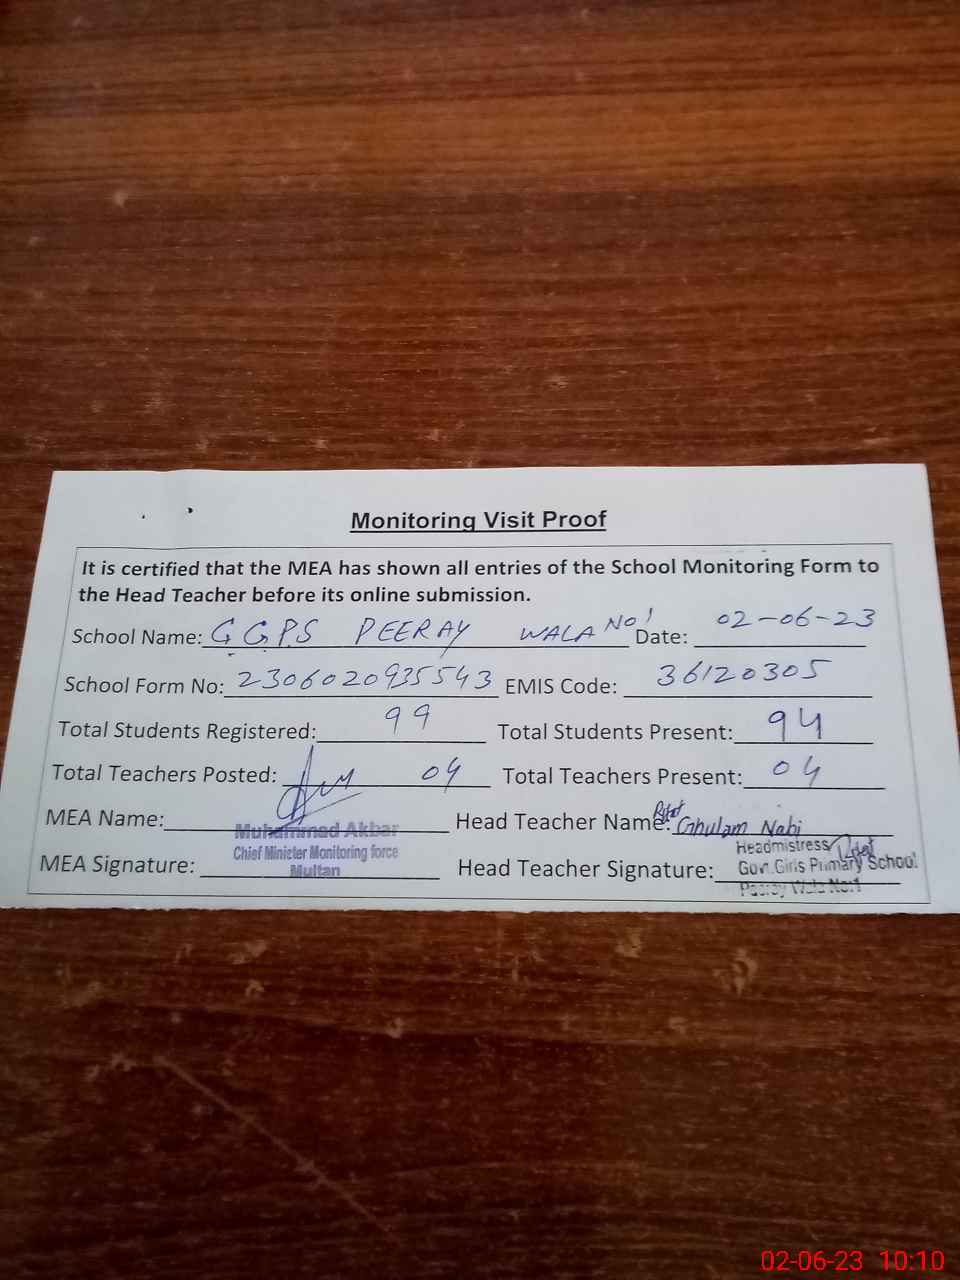 Monitoring Visit Proof
It is certified that the MEA has shown all entries of the School Monitoring Form to
the Head Teacher before its online submission.
School Name: G G P.S PEERAY WALA NO1 Date: 02-06-23
School Form No: 2306020935543 EMIS Code: 36120305
Total Students Registered: 99 Total Students Present: 94
Total Teachers Posted: 04 Total Teachers Present: 04
MEA Name: Head Teacher Name: Ghulam Nabi
Muhammad Akbar
Chief Minister Monitoring force
Multan
MEA Signature: Head Teacher Signature:
Headmistress
Govt.Girls Primary School
Peeray Wala No:1
02-06-23 10:10